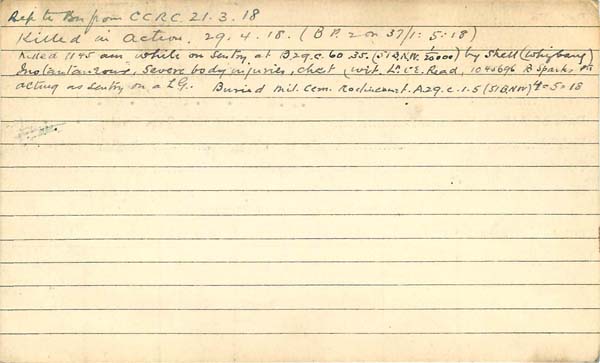 Rep to Bn from CCRC 21.3.18
Killed in action. 29.4.18. (B P. 2 on 37/1:5:18)
Killed 1145 am while on sentry at B.29.c.60.35. (51B.N.W. 1/20000) by Shell (Whizbang)
Instantaneous, Severe body injuries, chest (wit. Read, 1045696 Sparks
acting as sentry on a LG. Buried Mil. Cem. Roclincourt. A.29.c.1.5 (51B.NW) 4=5=18